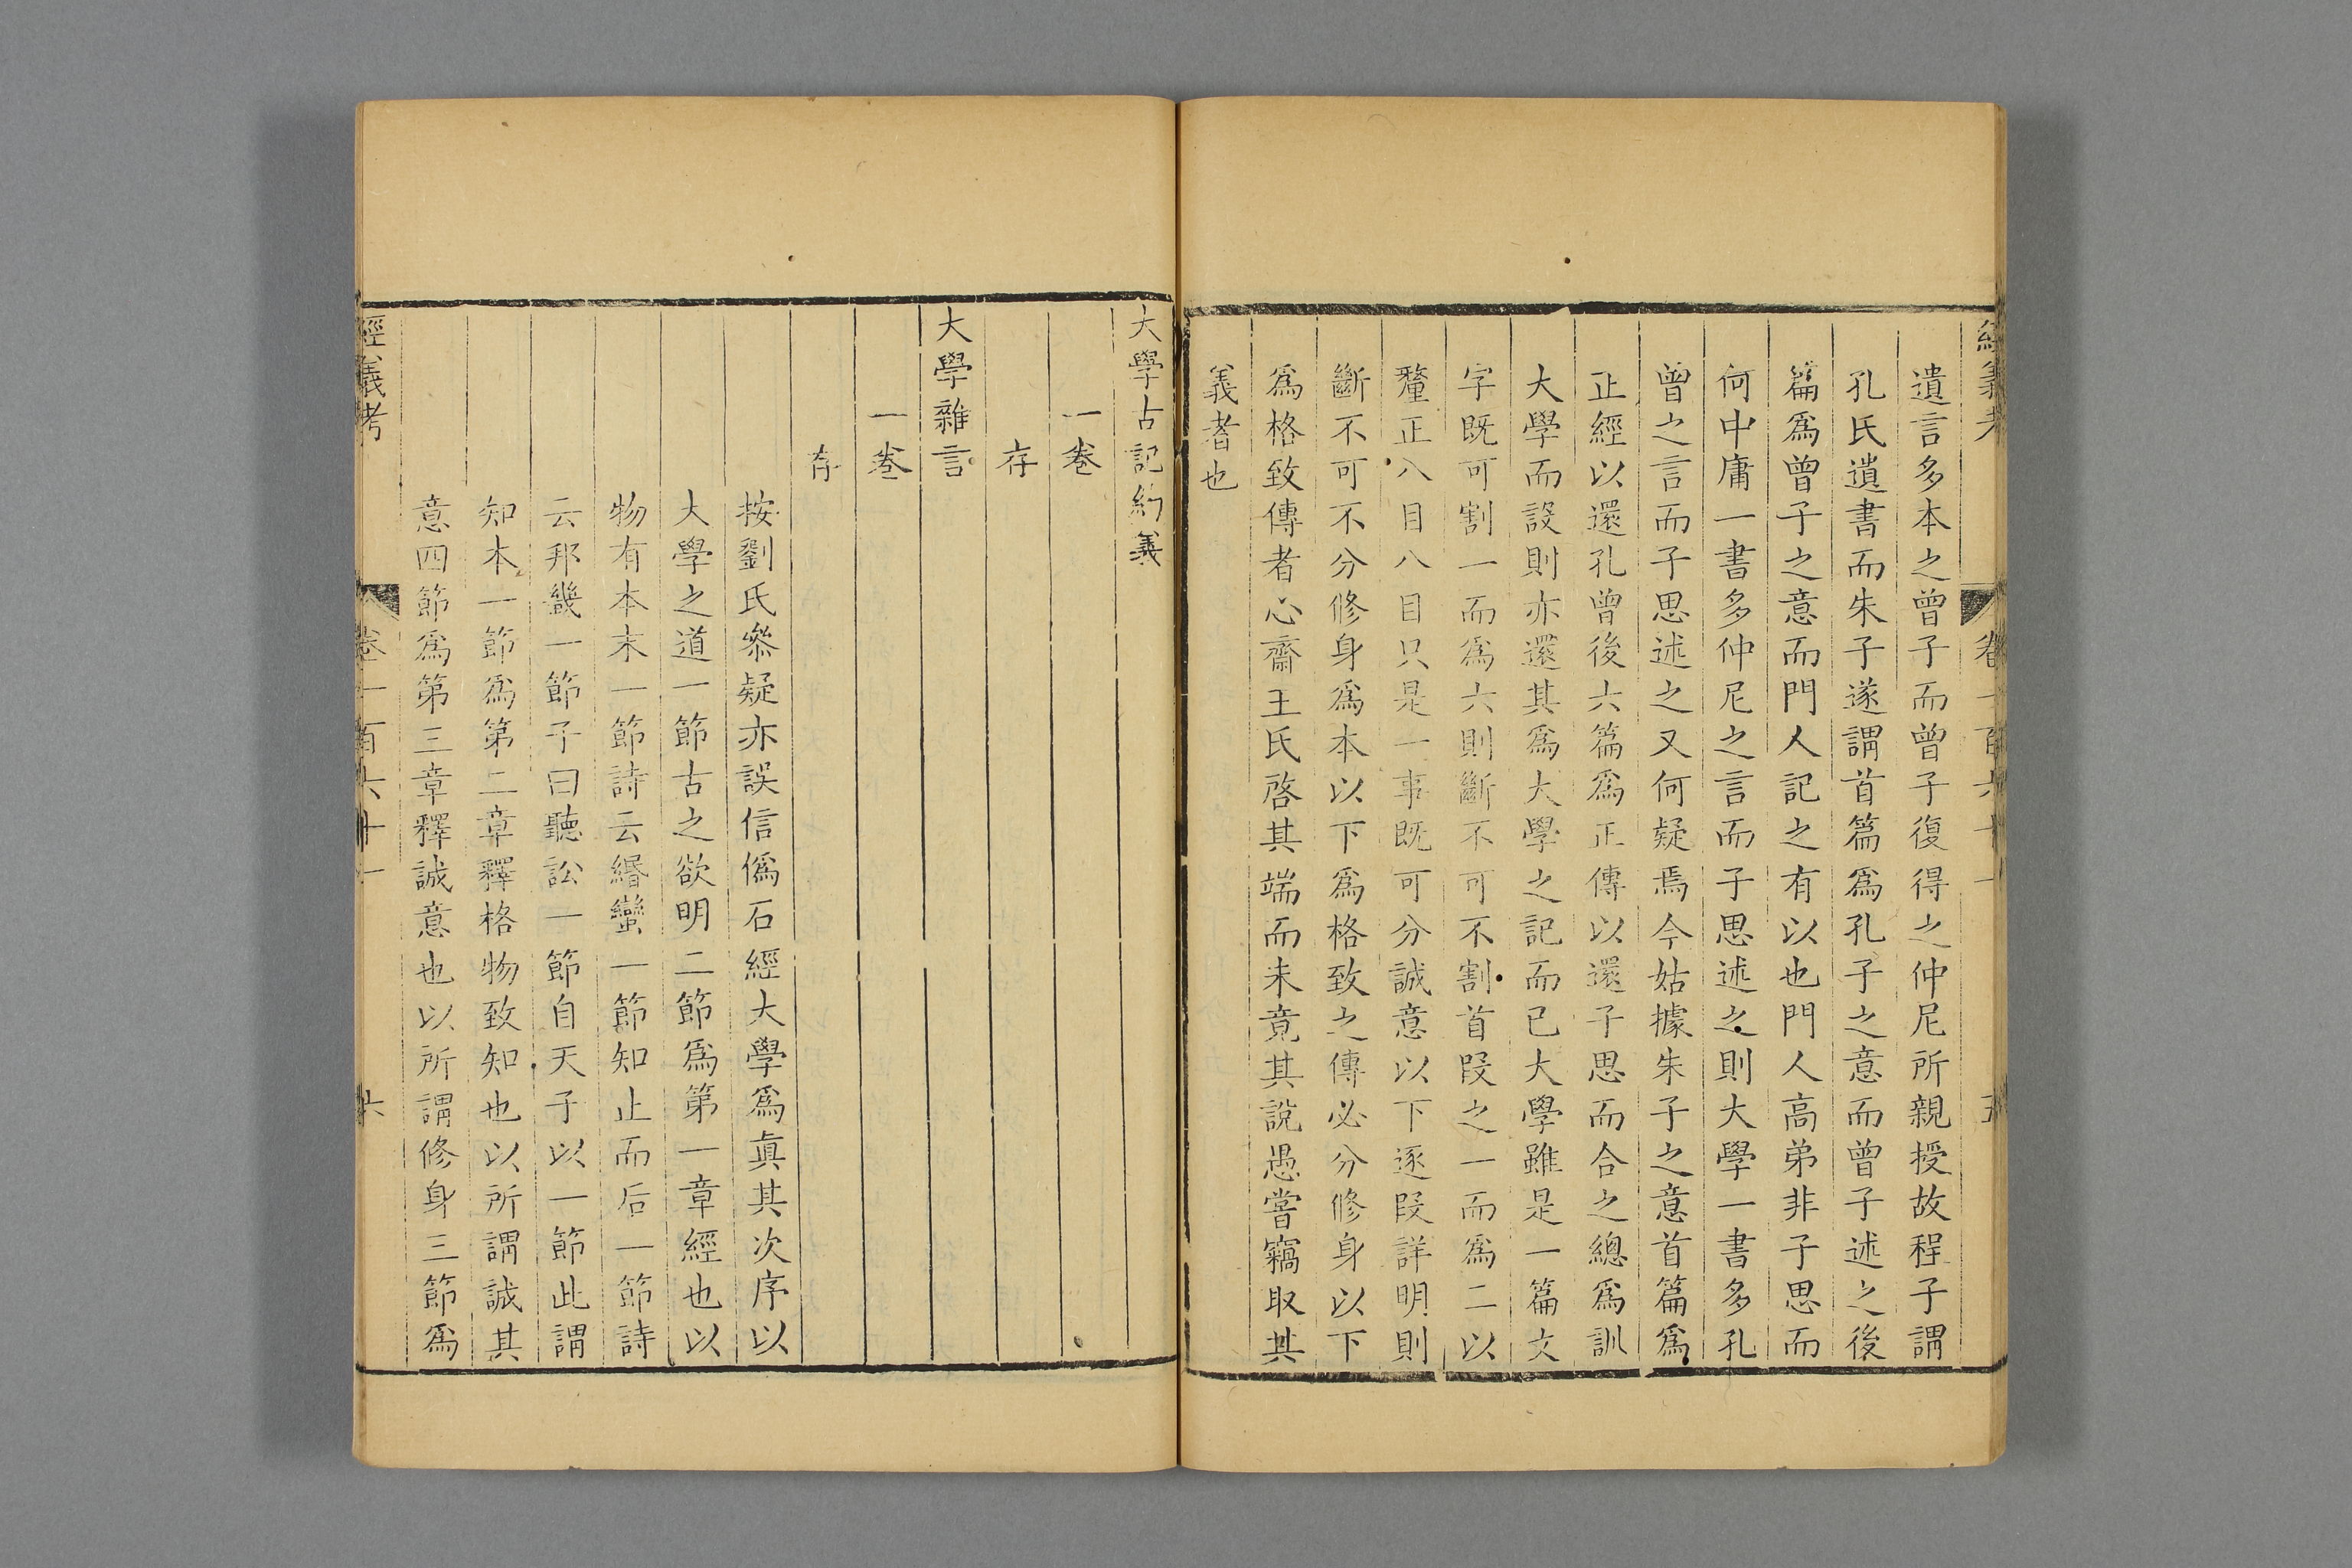 經義考 卷一百六十一 五
遺言多本之曾子而曾子復得之仲尼所親授故程子謂
孔氏遺書而朱子遂謂首篇爲孔子之意而曾子述之後
篇爲曾子之意而門人記之有以也門人高弟非子思而
何中庸一書多仲尼之言而子思述之則大學一書多孔
曾之言而子思述之又何疑焉今姑據朱子之意首篇爲
正經以還孔曾後六篇爲正傳以還子思而合之總爲訓
大學而設則亦還其爲大學之記而已大學雖是一篇文
字既可割一而爲六則斷不可不割首段之一而爲二以
釐正八目八目只是一事既可分誠意以下逐段詳明則
斷不可不分修身爲本以下爲格致之傳必分修身以下
爲格致傳者心齋王氏啓其端而未竟其說愚嘗竊取其
義者也
大學古記約義
一卷
存
大學雜言
一卷
存
按劉氏參疑亦誤信僞石經大學爲眞其次序以
大學之道一節古之欲明二節爲第一章經也以
物有本末一節詩云緡蠻一節知止而后一節詩
云邦畿一節子曰聽訟一節自天子以一節此謂
知本一節爲第二章釋格物致知也以所謂誠其
意四節爲第三章釋誠意也以所謂修身三節爲
經義考 卷一百六十一 六